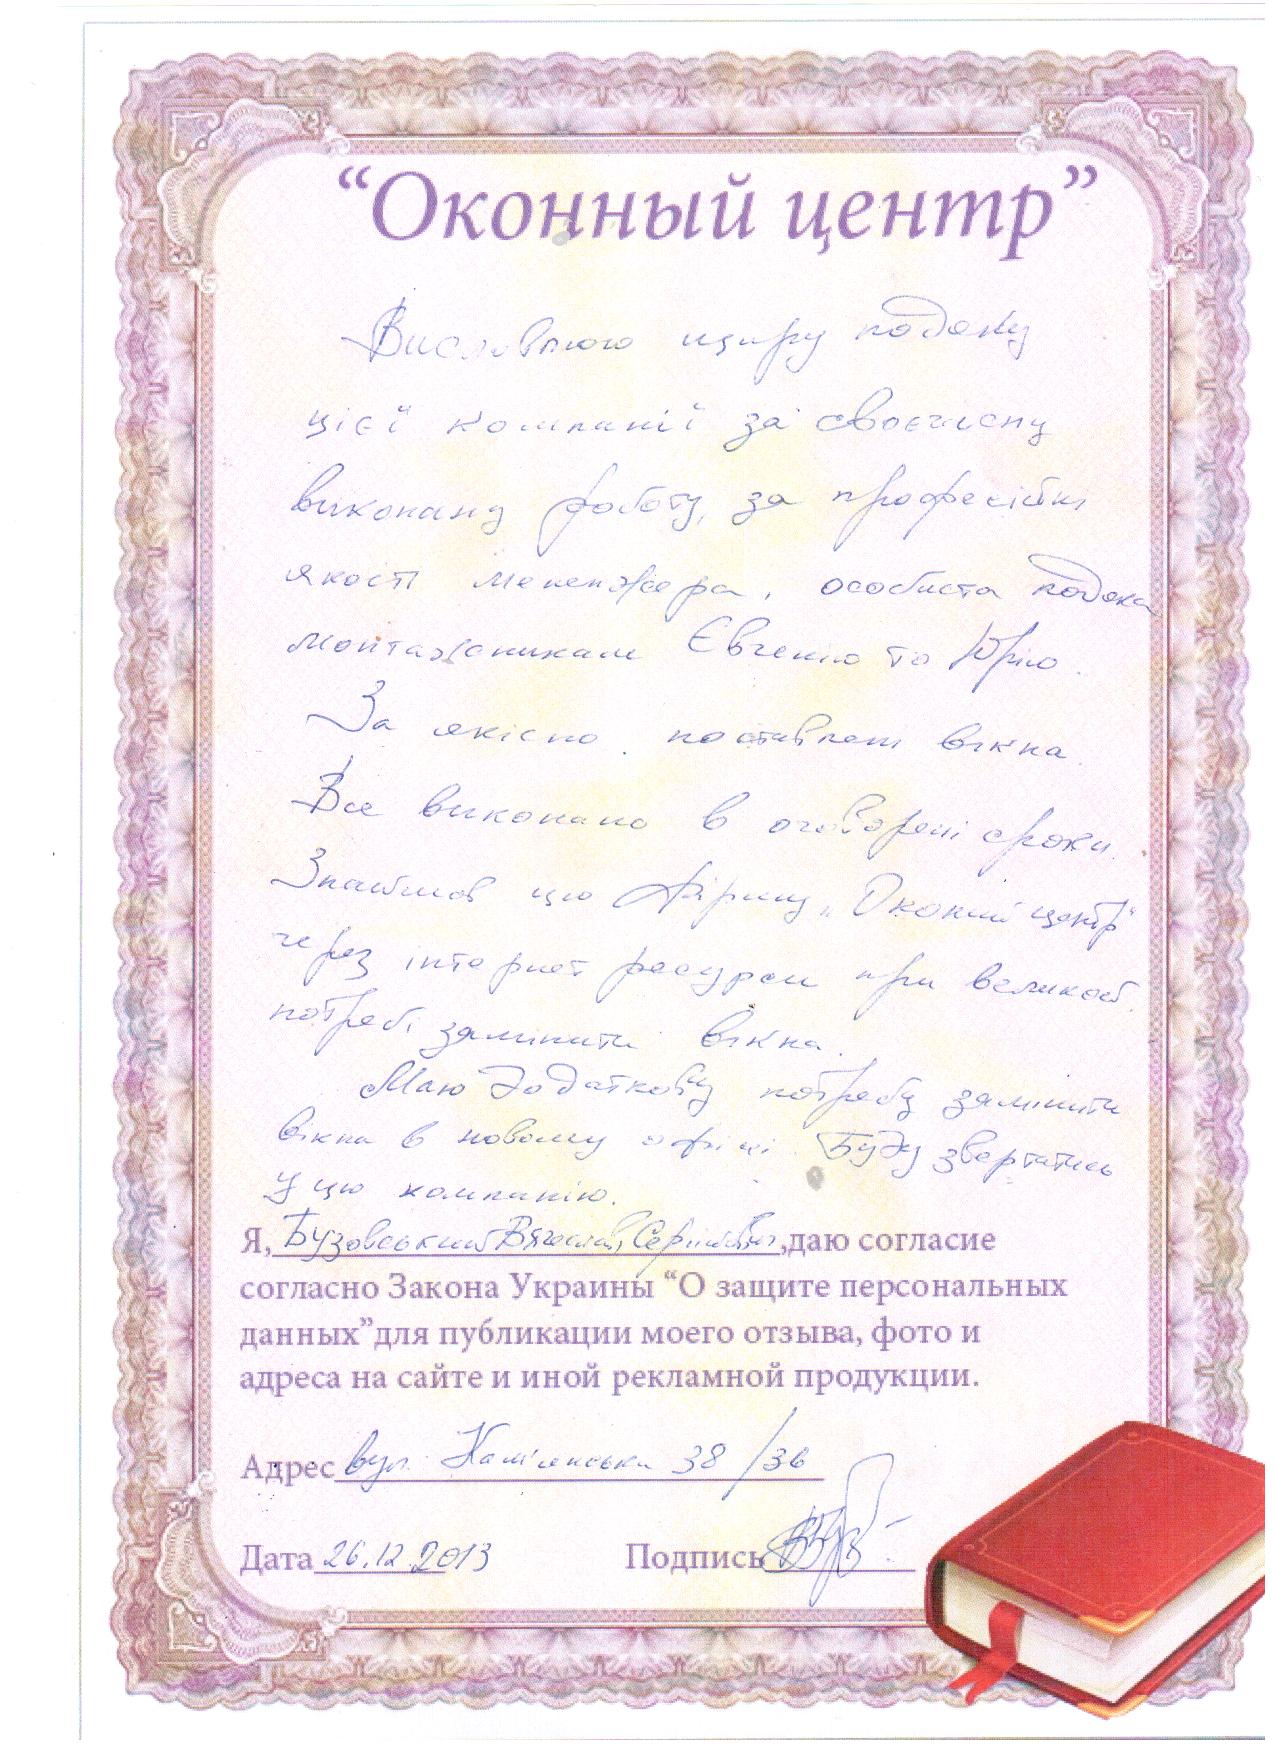 “Оконный центр”
Висловлюю щиру подяку
цієї компанії за своєчасну
виконану роботу, за професійні
якості мененжера, особиста подяка
монтажникам Євгенію та Юрію.
За якісно поставлені вікна.
Все виконано в оговорені сроки.
Знайшов цю фірму „Оконний центр“
через інтернет ресурси при великой
потребі замінити вікна.
Маю додаткову потребу замінити
вікна в новому офісі. Буду звертатись
у цю компанію.
Я, Бузовський Вячеслав Сергійович,даю согласие
согласно Закона Украины “О защите персональных
данных”для публикации моего отзыва, фото и
адреса на сайте и иной рекламной продукции.
Адрес вул. 38/36
Дата 26.12.2013 Подпись